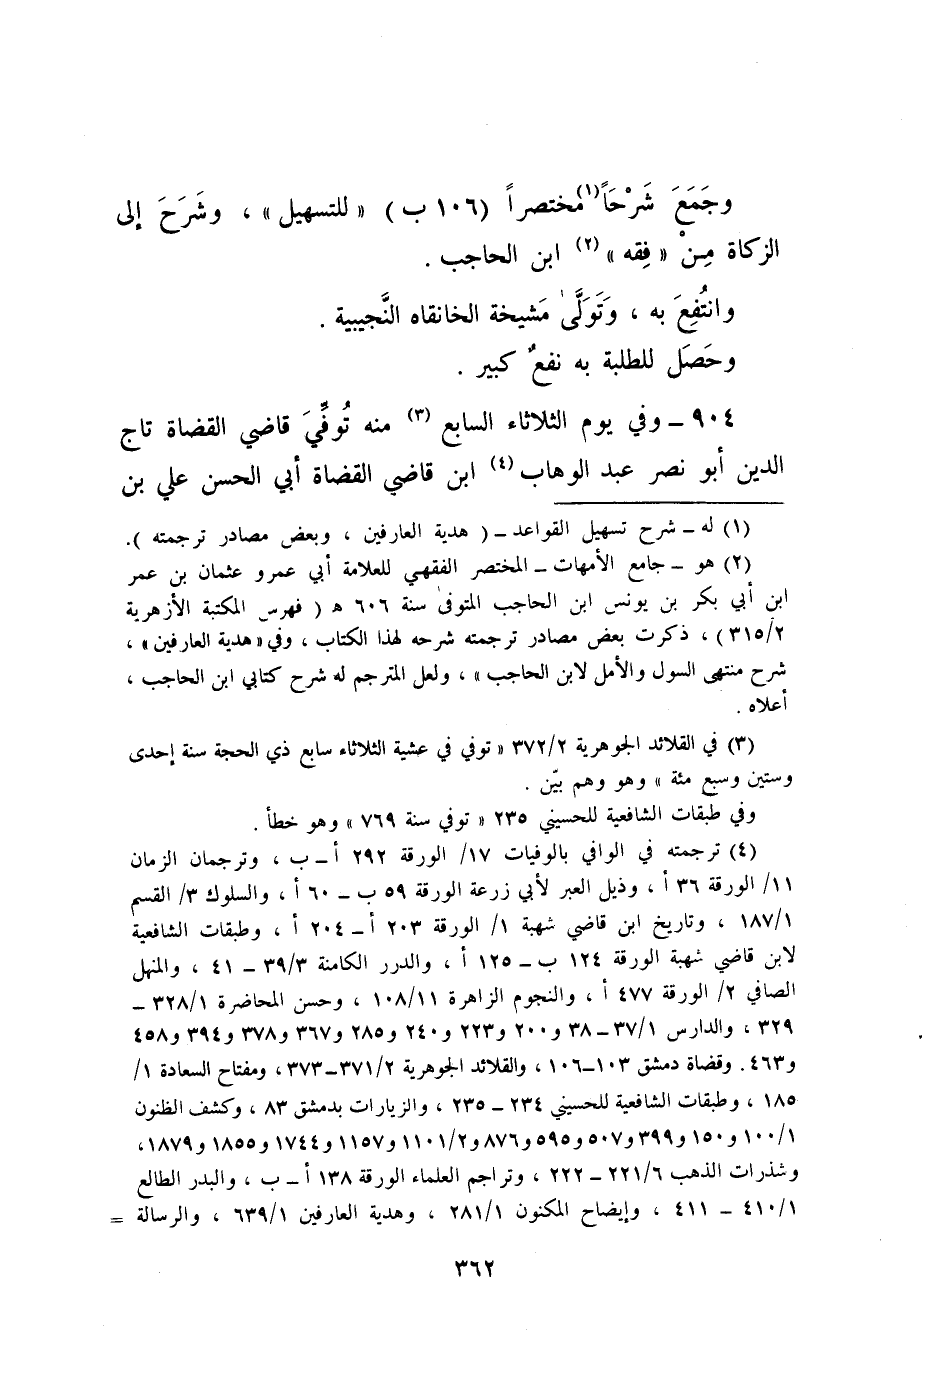 وجَمَعَ شَرْحَاً(١) مختصراً (١٠٦ ب) « للتسهيل » ، وشَرَحَ إلى
الزكاة مِنْ « فِقه » (٢) ابن الحاجب .
وانتُفِعَ به ، وَتَوَلَّىٰ مَشيخة الخانقاه النَّجيبية .
وحَصَل للطلبة به نفعٌ كبير .
٩٠٤ ـ وفي يوم الثلاثاء السابع (٣) منه تُوفِّيَ قاضي القضاة تاج
الدين أبو نصر عبد الوهاب (٤) ابن قاضي القضاة أبي الحسن علي بن
(١) له ـ شرح تسهيل القواعد ـ ( هدية العارفين ، وبعض مصادر ترجمته ).
(٢) هو ـ جامع الأمهات ـ المختصر الفقهي للعلامة أبي عمرو عثمان بن عمر
ابن أبي بكر بن يونس ابن الحاجب المتوفىٰ سنة ٦٠٦ هـ ( فهرس المكتبة الأزهرية
٣١٥/٢ ) ، ذكرت بعض مصادر ترجمته شرحه لهذا الكتاب ، وفي « هدية العارفين » ،
شرح منتهى السول والأمل لابن الحاجب » ، ولعل المترجم له شرح كتابي ابن الحاجب ،
أعلاه .
(٣) في القلائد الجوهرية ٣٧٢/٢ « توفي في عشية الثلاثاء سابع ذي الحجة سنة إحدى
وستين وسبع مئة » وهو وهم بيّن .
وفي طبقات الشافعية للحسيني ٢٣٥ « توفي سنة ٧٦٩ » وهو خطأ .
(٤) ترجمته في الوافي بالوفيات ١٧/ الورقة ٢٩٢ أ ـ ب ، وترجمان الزمان
١١/ الورقة ٣٦ أ ، وذيل العبر لأبي زرعة الورقة ٥٩ ب ـ ٦٠ أ ، والسلوك ٣/ القسم
١٨٧/١ ، وتاريخ ابن قاضي شهبة ١/ الورقة ٢٠٣ أ ـ ٢٠٤ أ ، وطبقات الشافعية
لابن قاضي شهبة الورقة ١٢٤ ب ـ ١٢٥ أ ، والدرر الكامنة ٣٩/٣ ـ ٤١ ، والمنهل
الصافي ٢/ الورقة ٤٧٧ أ ، والنجوم الزاهرة ١٠٨/١١ ، وحسن المحاضرة ٣٢٨/١ ـ
٣٢٩ ، والدارس ٣٧/١ ـ ٣٨ و٢٠٠ و٢٢٣ و٢٤٠ و٢٨٥ و٣٦٧ و٣٧٨ و٣٩٤ و٤٥٨
و٤٦٣ . وقضاة دمشق ١٠٣ ـ ١٠٦ ، والقلائد الجوهرية ٣٧١/٢ ـ ٣٧٣ ، ومفتاح السعادة ١/
١٨٥ ، وطبقات الشافعية للحسيني ٢٣٤ ـ ٢٣٥ ، والزيارات بدمشق ٨٣ ، وكشف الظنون
١٠٠/١ و١٥٠ و٣٩٩ و٥٠٧ و٥٩٥ و٨٧٦ و١١٠١/٢ و١١٥٧ و١٧٤٤ و١٨٥٥ و١٨٧٩ ،
وشذرات الذهب ٢٢١/٦ ـ ٢٢٢ ، وتراجم العلماء الورقة ١٣٨ أ ـ ب ، والبدر الطالع
٤١٠/١ ـ ٤١١ ، وإيضاح المكنون ٢٨١/١ ، وهدية العارفين ٦٣٩/١ ، والرسالة =
٣٦٢